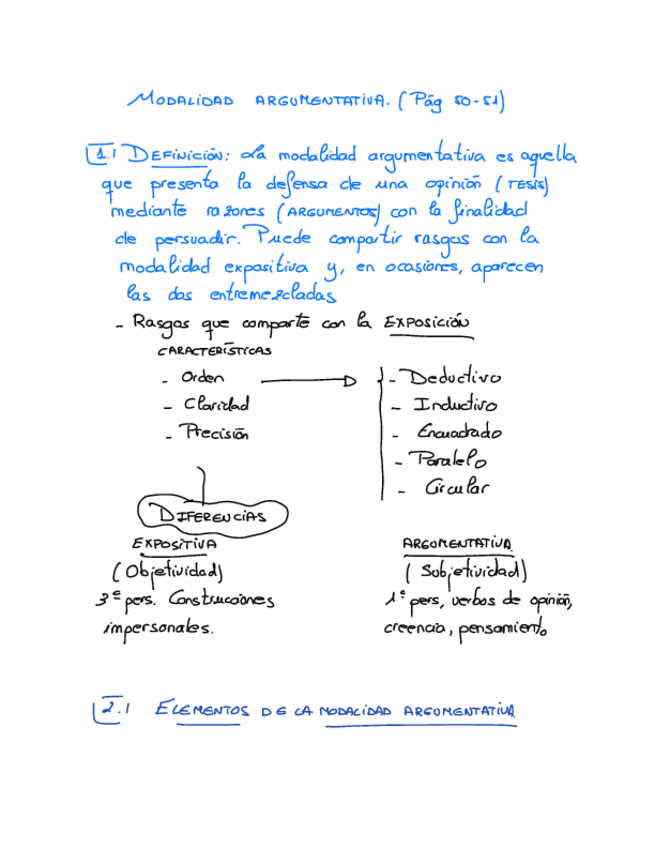 MODALIDAD ARGUMENTATIVA. (Pág 50-51)
1.1 DEFINICIÓN: La modalidad argumentativa es aquella
que presenta la defensa de una opinión (TESIS)
mediante razones (ARGUMENTOS) con la finalidad
de persuadir. Puede compartir rasgos con la
modalidad expositiva y, en ocasiones, aparecen
las dos entremezcladas
- Rasgos que comparte con la EXPOSICIÓN
CARACTERÍSTICAS
- Orden
- Deductivo
- Claridad
- Inductivo
- Precisión
- Encuadrado
- Paralelo
- Circular
DIFERENCIAS
EXPOSITIVA
(Objetividad)
3ª pers. Construcciones
impersonales.
ARGUMENTATIVA
(Subjetividad)
1ª pers, verbos de opinión,
creencia, pensamiento
2.1 ELEMENTOS DE LA MODALIDAD ARGUMENTATIVA